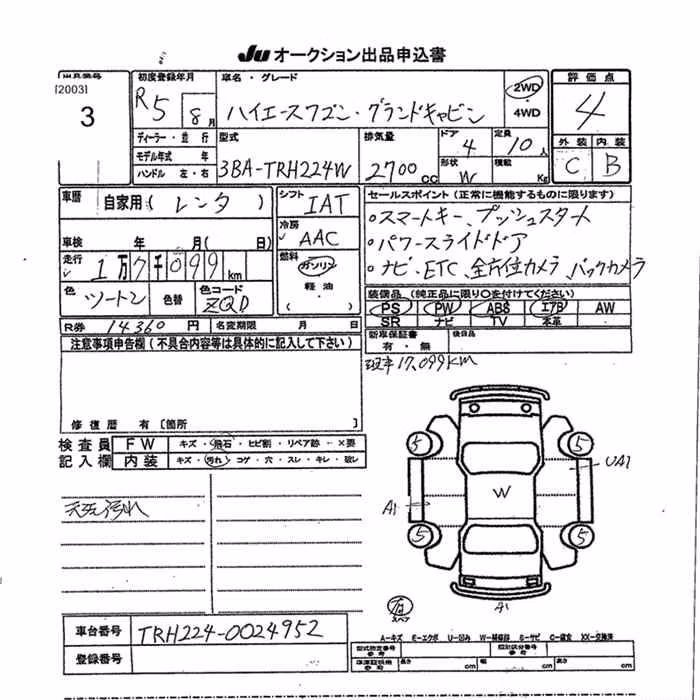 JU オークション出品申込書
出品番号
[2003]
3
初度登録年月
R5 8月
車名・グレード
ハイエースワゴン・グランドキャビン
2WD
・
4WD
評価点
4
外装 内装
C B
ディーラー・並行
モデル年式 年
ハンドル 左・右
型式
3BA-TRH224W
排気量
2700 CC
ドア
4
形状
W
定員
10人
積載
Kg
車歴
自家用(レンタ)
車検 年 月( 日)
走行
1万7千099km
色
ツートン
色替
色コード
ZQD
R券 14360 円
名変期限 月 日
シフト
IAT
冷房
AAC
燃料
ガソリン
軽油・
( )
セールスポイント(正常に機能するものに限ります)
○スマートキー、プッシュスタート
○パワースライドドア
○ナビ、ETC、全方位カメラ、バックカメラ
装備品(純正品に限り○を付けてください)
PS PW ABS エアB AW
SR ナビ TV 本革
新車保証書
有・無
後日品
注意事項申告欄(不具合内容等は具体的に記入して下さい)
17,099KM
修復歴 有 [箇所 ]
検査員
記入欄
FW キズ・飛石・ヒビ割・リペア跡・×要
内装 キズ・汚れ・コゲ・穴・スレ・キレ・破レ
天張汚れ
5 5
UA1
W
A1
5 5
A1
スペア
A-キズ E-エクボ U-凹み W-補修跡 S-サビ C-腐食 XX-交換済
車台番号 TRH224-0024952
登録番号
型式指定番号
参考
類別区分番号
参考
車庫証明用
参考
長さ cm 幅 cm 高さ cm